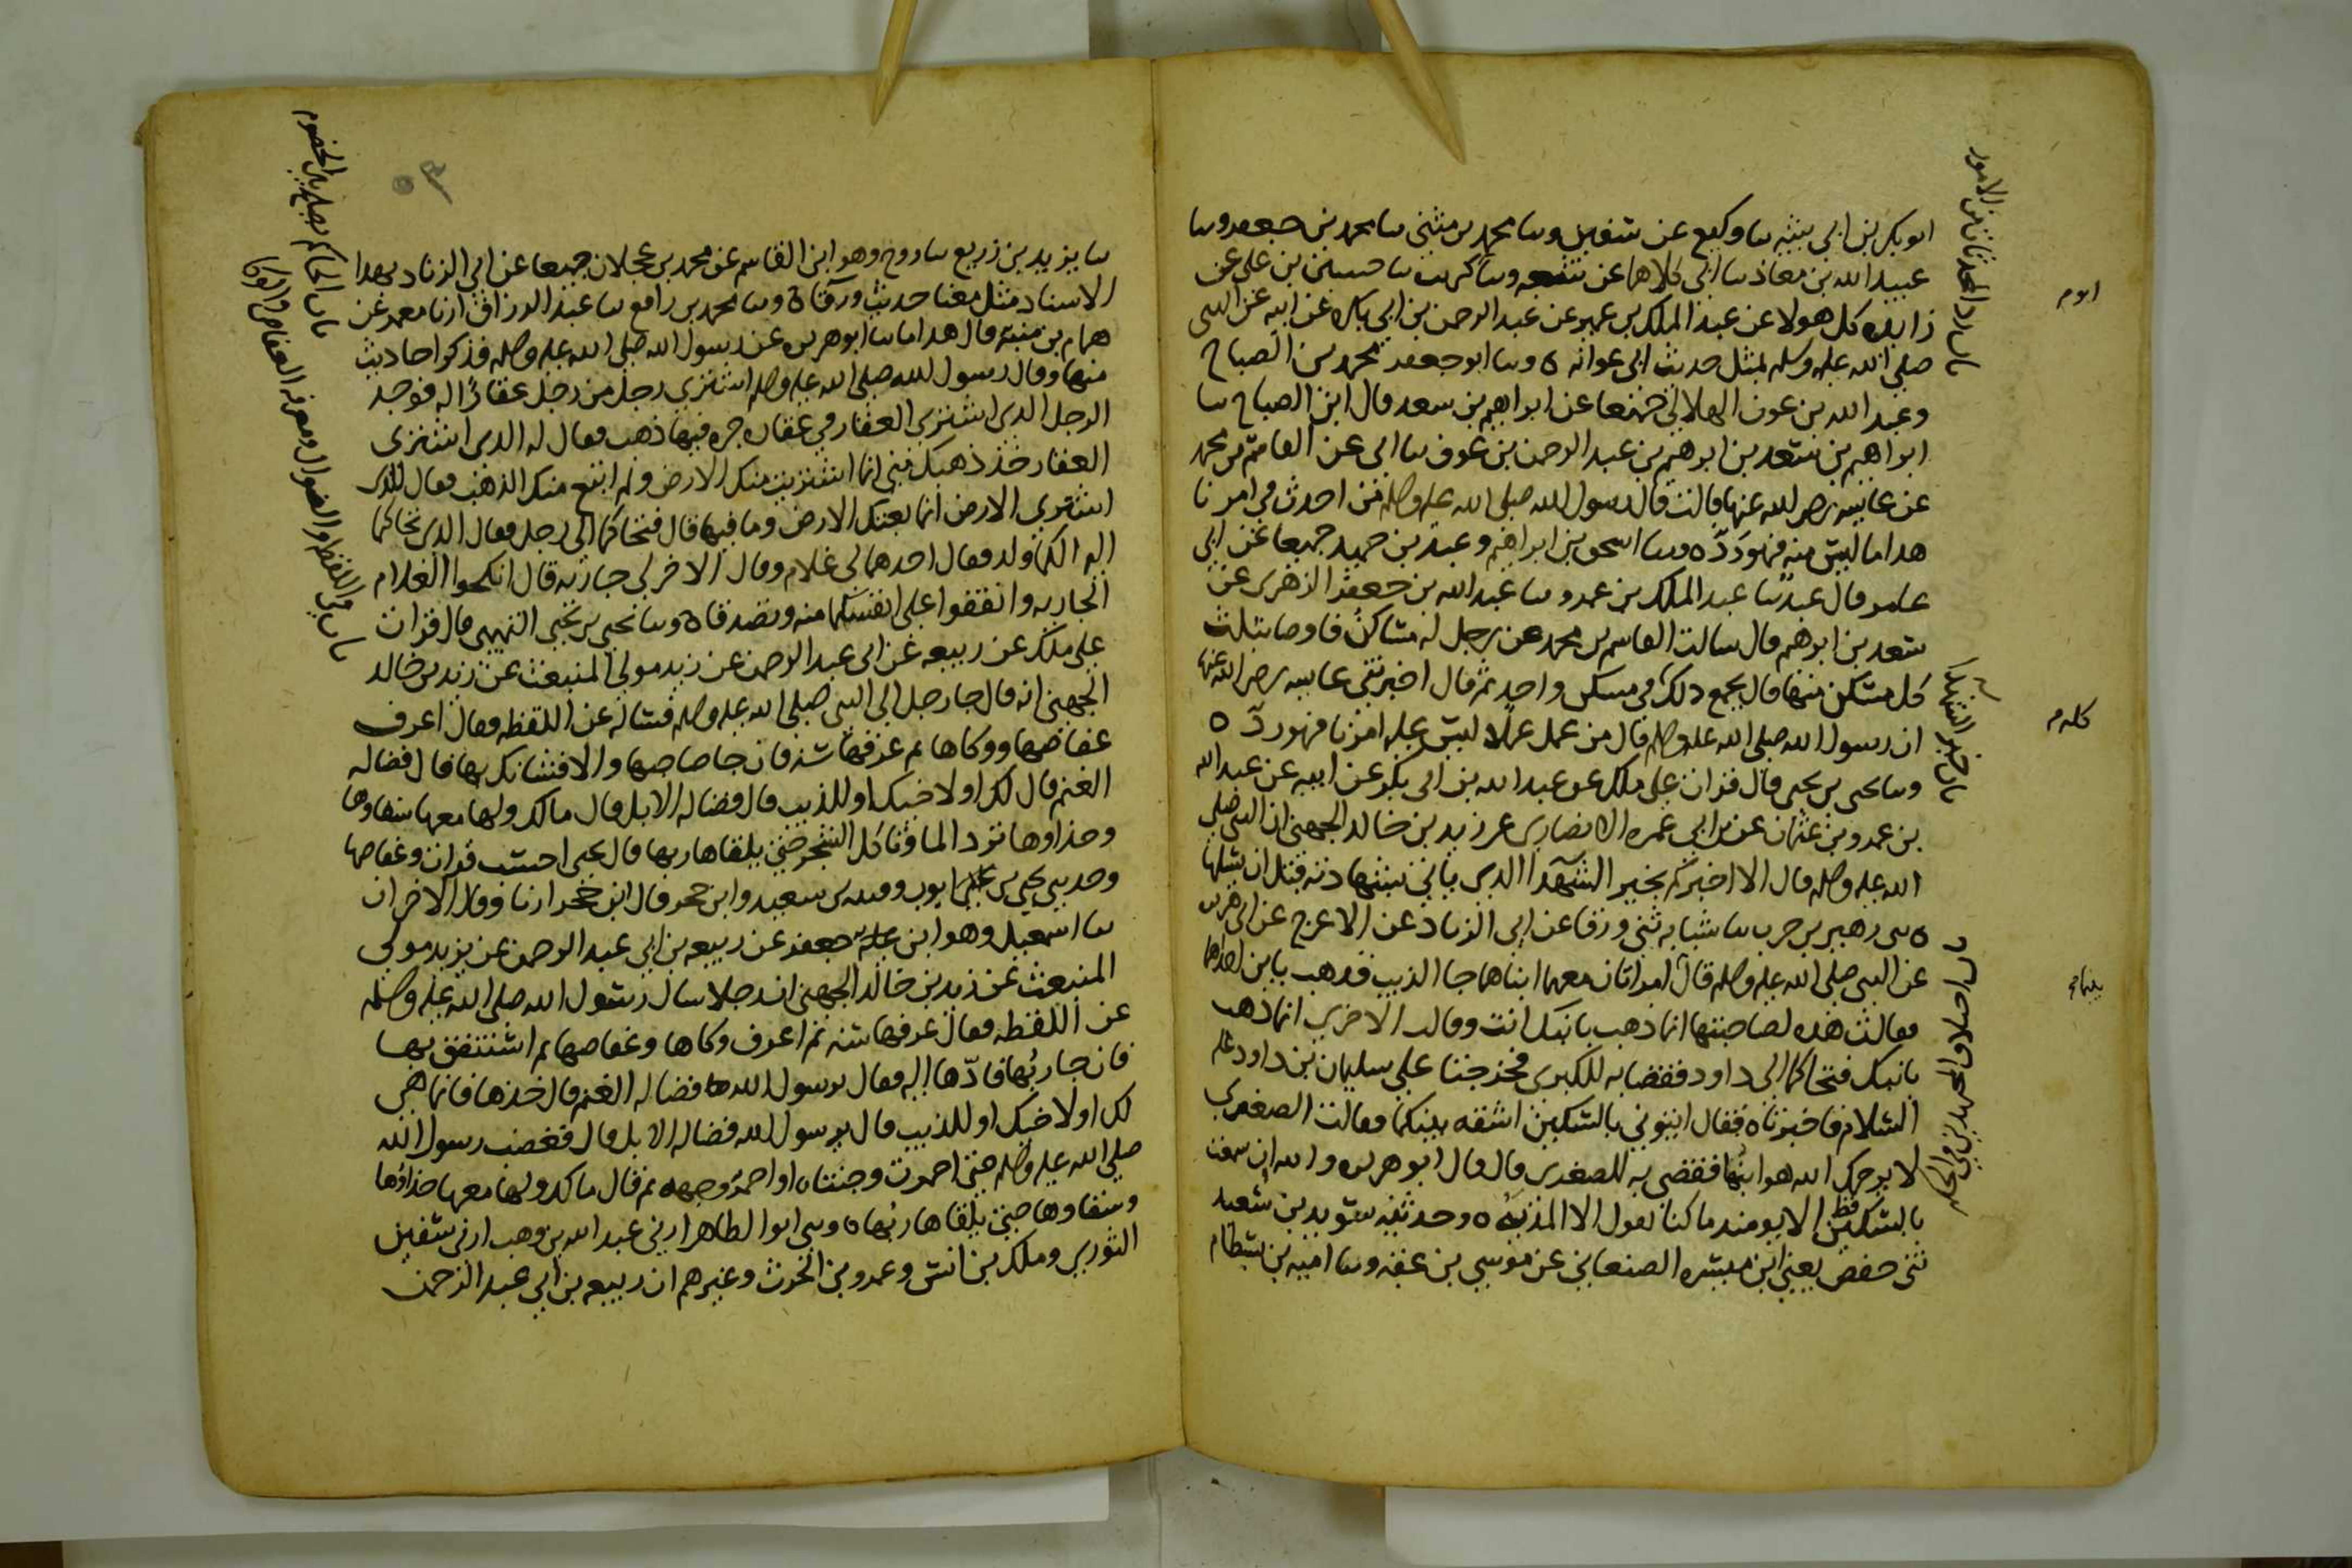 ابو بكر بن ابي شيبه سا وكيع عن سفين وسا محمد بن مثنى سا محمد بن جعفر وسا
عبيد الله بن معاذ سا ابي كلاهما عن شعبه وسا كريب سا حسين بن علي عن
زايده كل هولا عن عبد الملك بن عمير عن عبد الرحمن بن ابي بكره عن ابيه عن النبي
صلى الله عليه وسلم بمثل حديث ابي عوانه ه وسا ابو جعفر محمد بن الصباح
وعبد الله بن عون الهلالي جميعا عن ابراهيم بن سعد قال ابن الصباح سا
ابراهيم بن سعد بن ابرهيم بن عبد الرحمن بن عوف سا ابي عن القاسم بن محمد
عن عايشه رضي الله عنها قالت قال رسول الله صلى الله عليه وسلم من احدث في امرنا
هدا ما ليس منه فهو ردّ ه وسا اسحق بن ابراهيم وعبد بن حميد جميعا عن ابي
عامر قال عبد سا عبد الملك بن عمرو سا عبد الله بن جعفر الزهري عن
سعد بن ابرهم قال سالت القاسم بن محمد عن رجل له مساكن فاوصا بثلث
كل مسكن منها قال يجمع دلك في مسكن واحد ثم قال اخبرتني عايشه رضي الله عنها
ان رسول الله صلى الله عليه وسلم قال من عمل عملا ليس عليه امرنا فهو ردّ ه
وسا يحيى بن يحيى قال قرات على ملك عن عبد الله بن ابي بكر عن ابيه عن عبد الله
بن عمرو بن عثمان عن بن ابي عمره الانصاري عن زيد بن خالد الجهني ان النبي صلى
الله عليه وسلم قال الا اخبركم بخير الشهدا الدي ياتي بشهادته قبل ان يسلها
ه سى زهير بن حرب سا شبابه ثني ورقا عن ابي الزناد عن الاعرج عن ابي هريره
عن النبي صلى الله عليه وسلم قال امراتان معهما ابناهما جا الذيب فدهب بابن احداهما
فقالت هده لصاحبتها انما ذهب بابنك انت وقالت الاخرى انما دهب
بابنك فتحاكما الى داود فقضا به للكبرى فخرجتا على سليمان بن داود عليه
السلام فاخبرتاه فقال ايتوني بالسكين اشقه بينكما فقالت الصغرى
لا يرحمك الله هو ابنها فقضى به للصغرى قال قال ابو هريره والله ان سمعت
بالسكين قط الا يومىد ما كنا نقول الا المذيه ه وحدثنيه سويد بن سعيد
ثني حفص يعني ابن ميسره الصنعاني عن موسى بن عقبه وسا اميه بن بسطام
باب رد المحدثات من الامور
باب خير الشهدا
باب اختلاف المجتهدين في الحكم
كله م
بينهما
سا يزيد بن زريع سا روح وهو ابن القاسم عن محمد بن عجلان جميعا عن ابي الزناد بهدا
الاسناد مثل معنا حديث ورقا ه وسا محمد بن رافع سا عبد الرزاق انا معمر عن
همام بن منبه قال هدا ما سا ابو هريره عن رسول الله صلى الله عليه وسلم فذكر احاديث
منها وقال رسول الله صلى الله عليه وسلم اشترى رجل من رجل عقارًا له فوجد
الرجل الدي اشترى العقار في عقاره جره فيها ذهب فقال له الدي اشترى
العقار خذ ذهبك مني انما اشتريت منك الارض ولم ابتع منك الذهب فقال الذي
اشترى الارض انما بعتك الارض وما فيها قال فتحاكما الى رجل فقال الدي تحاكما
اليه الكما ولد فقال احدهما لي غلام وقال الاخر لي جاريه قال انكحوا الغلام
الجاريه وانفقوا على انفسكما منه وتصدقا ه وسا يحيى بن يحيى التميمي قال قرات
على ملك عن ربيعه عن ابي عبد الرحمن عن زيد مولى المنبعث عن زيد بن خالد
الجهني انه قال جا رجل الى النبي صلى الله عليه وسلم فساله عن اللقطه فقال اعرف
عفاصها ووكاها ثم عرفها سنه فان جا صاحبها والا فشانك بها قال فضاله
الغنم قال لك او لاخيك او للذيب قال فضاله الابل قال مالك ولها معها سقاوها
وحذاوها ترد الما وتاكل الشجر حتى يلقاها ربها قال يحيى احسب قرات وعفاصها
وحدثني يحيى بن ايوب وقتيبه بن سعيد وابن حجر قال ابن حجر انا وقال الاخران
سا اسمعيل وهو ابن جعفر عن ربيعه بن ابي عبد الرحمن عن يزيد مولى
المنبعث عن زيد بن خالد الجهني ان رجلا سال رسول الله صلى الله عليه وسلم
عن اللقطه فقال عرفها سنه ثم اعرف وكاها وعفاصها ثم استنفق بها
فان جا ربُّها فادّها اليه فقال يرسول الله فضاله الغنم قال خذها فانما هي
لك او لاخيك او للذيب قال يرسول الله فضاله الابل قال فغضب رسول الله
صلى الله عليه وسلم حتى احمرت وجنتاه او احمرّ وجهه ثم قال مالك ولها معها حذاؤها
وسقاوها حتى يلقاها ربُّها ه وسى ابو الطاهر ارني عبد الله بن وهب ارني سفين
الثوري وملك بن انس وعمرو بن الحرث وغيرهم ان ربيعه بن ابي عبد الرحمن
باب الحاكم يصلح بين الخصوم
باب في اللقطه والضوال ومعرفه العفاص والوكا